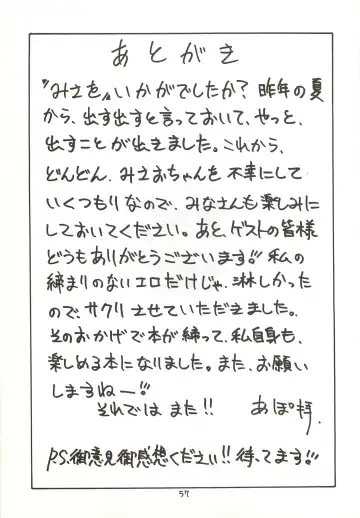 あとがき
〝みさを〟いかがでしたか？昨年の夏
から、出す出すと言っておいて、やっと、
出すことが出来ました。これから、
どんどん、みさおちゃんを不幸にして
いくつもりなので、みなさんも楽しみに
しておいてください。あと、ゲストの皆様
どうもありがとうございます!!私の
締まりのないエロだけじゃ、淋しかった
ので、サクリさせていただきました。
そのおかげで本が締って、私自身も、
楽しめる本になりました。また、お願い
しますねー!!
それでは また!! あぽ拝.
P.S.御意見御感想ください!!待ってます!!!
57